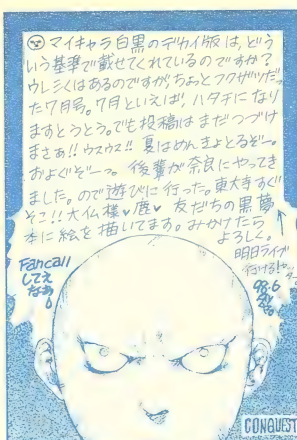 マイキャラ白黒のデカイ版は、どう
いう基準で載せてくれているのですか?
ウレシくはあるのですが、ちょっとフクザツだっ
た7月号。7月といえば、ハタチになり
ますとうとう。でも投稿はまだつづけ
まさぁ!!ウスウス!!夏はめんきょとるぞー。
およぐぞーっ。後輩が奈良にやってき
ました。ので遊びに行った。東大寺すぐ
そこ!!大仏様♥鹿♥友だちの黒夢
本に絵を描いてます。みかけたら
よろしく。
明日ライブ
行ける!ヤッター
Fancall
してえ
なあ
98.6
CONQUEST